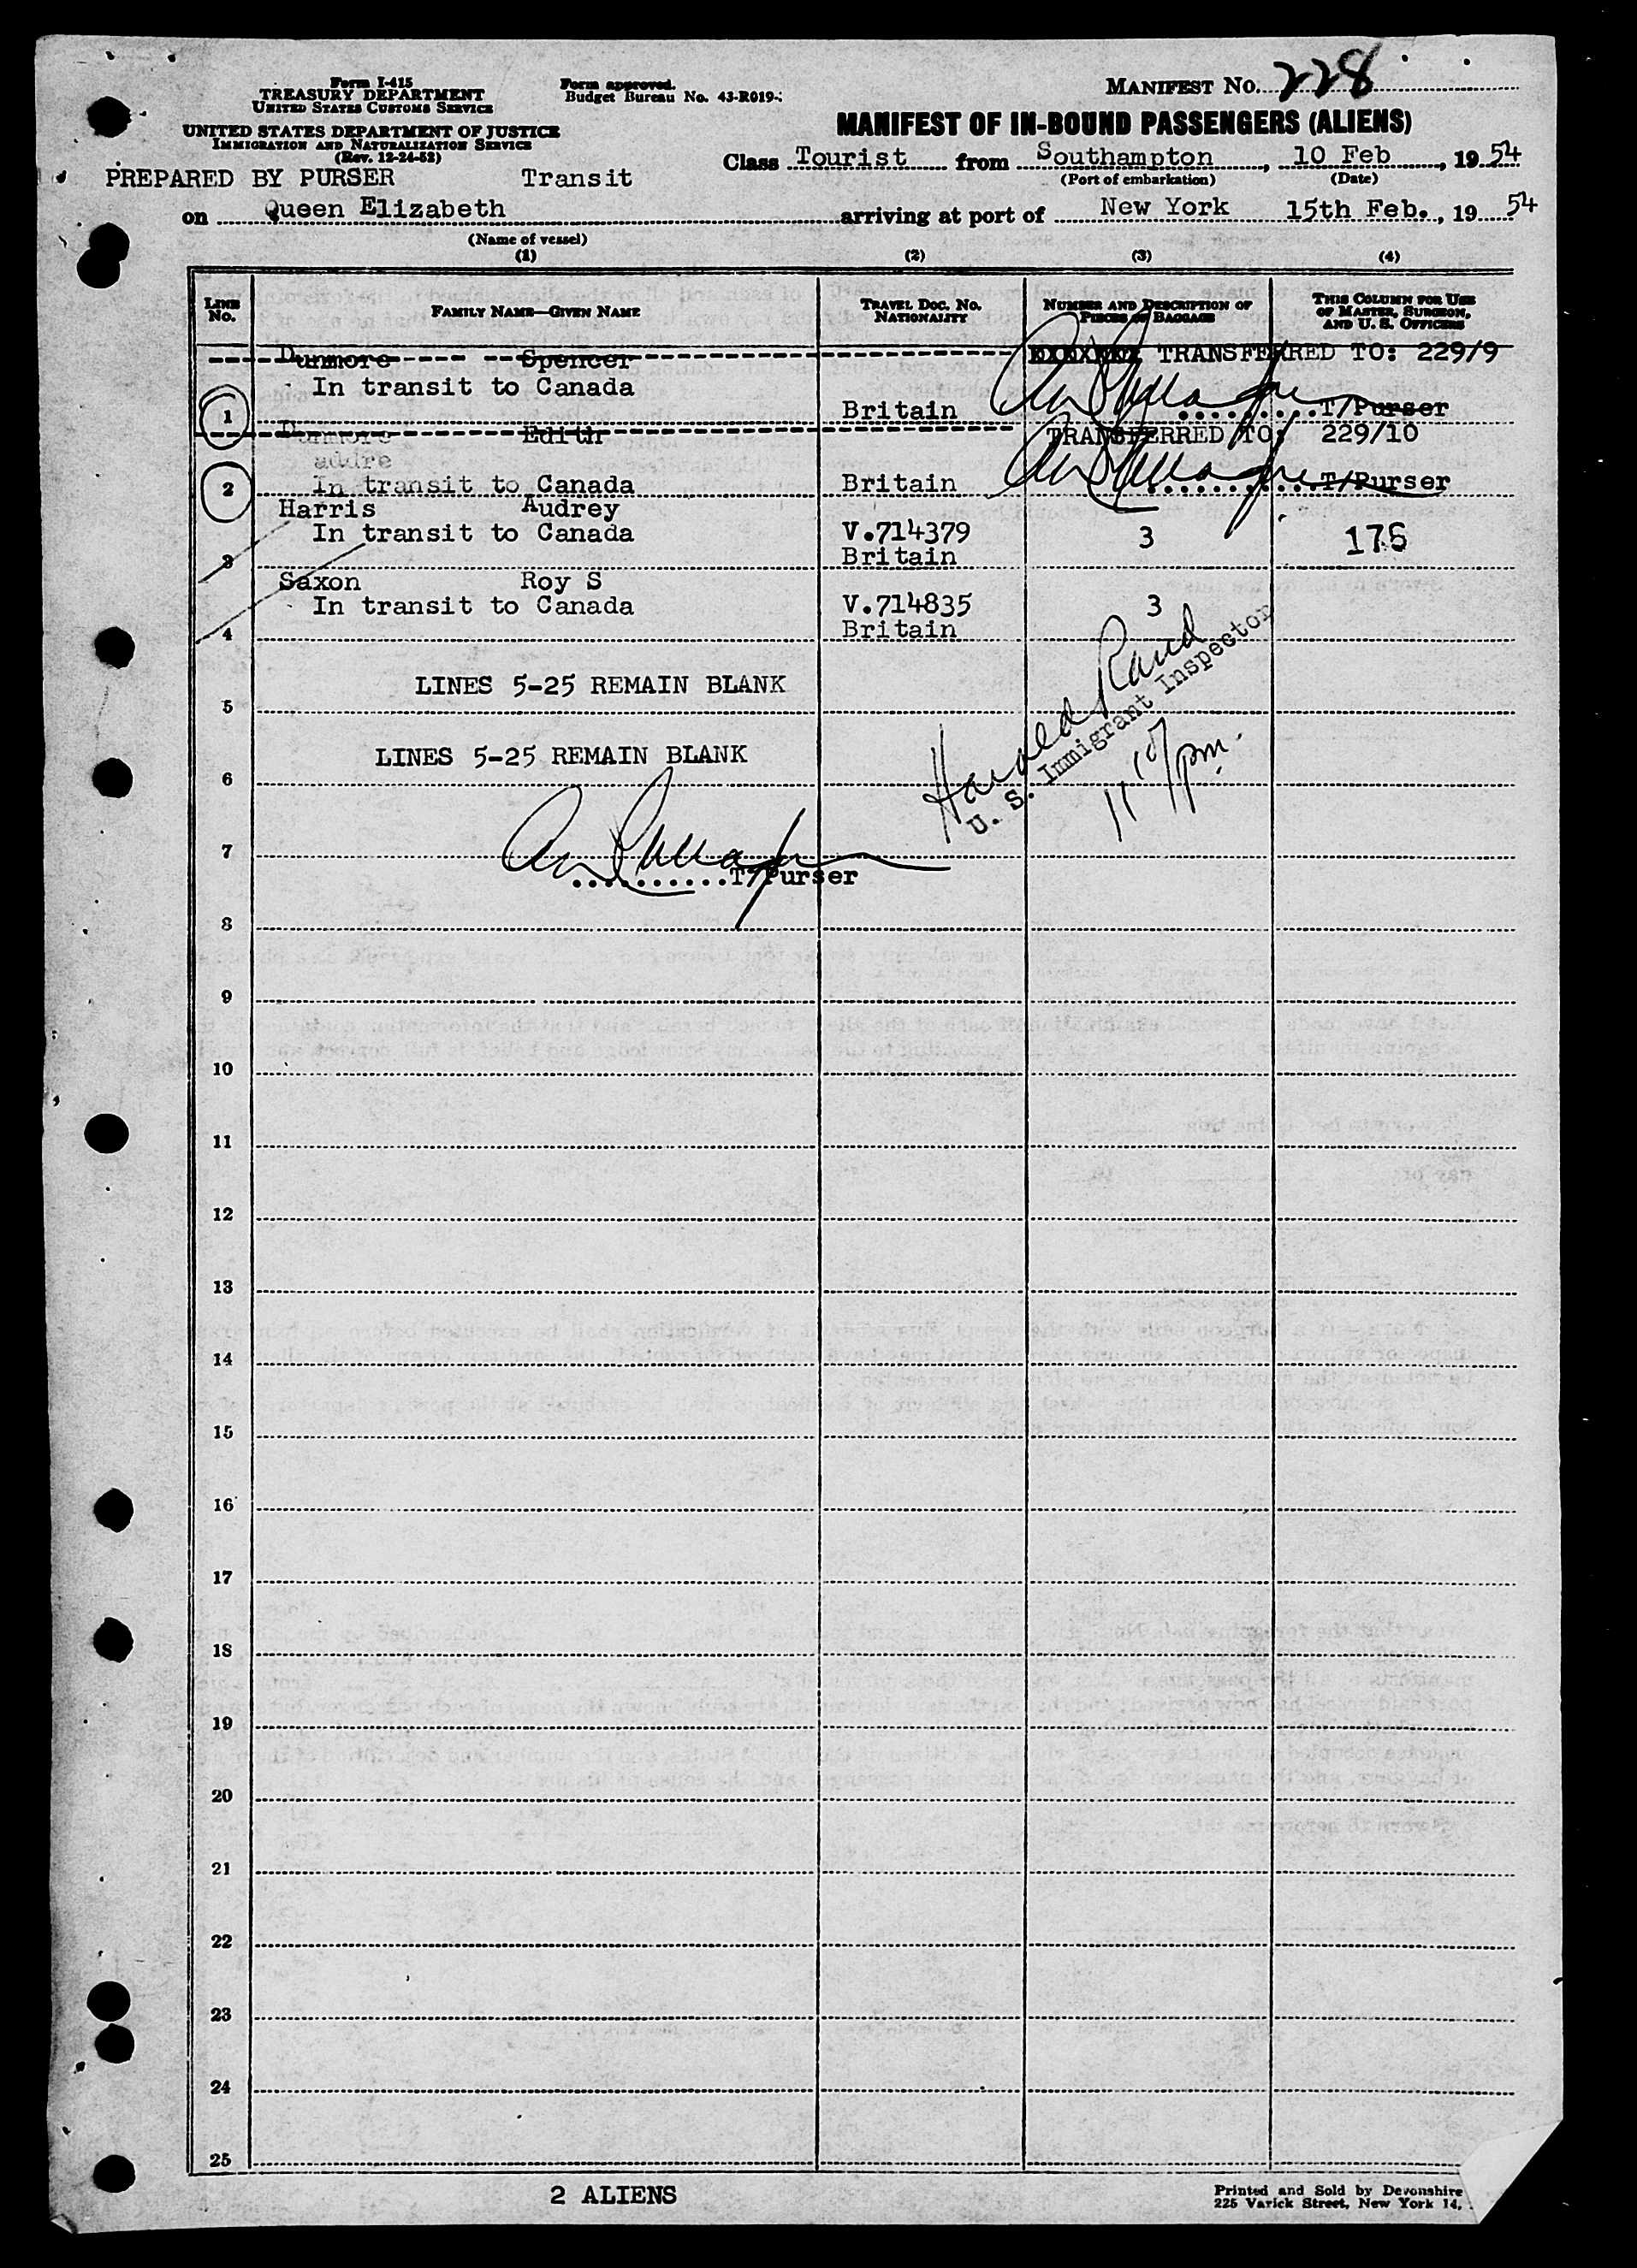 Form I-415
TREASURY DEPARTMENT
UNITED STATES CUSTOMS SERVICE
UNITED STATES DEPARTMENT OF JUSTICE
IMMIGRATION AND NATURALIZATION SERVICE
(Rev. 12-24-52)
Form approved.
Budget Bureau No. 43-R019-
MANIFEST NO. 228
MANIFEST OF IN-BOUND PASSENGERS (ALIENS)
Class Tourist from Southampton, 10 Feb, 1954
(Port of embarkation) (Date)
PREPARED BY PURSER Transit
on Queen Elizabeth arriving at port of New York 15th Feb., 1954
(Name of vessel)
(1) (2) (3) (4)
LINE NO.
FAMILY NAME—GIVEN NAME
TRAVEL DOC. NO. NATIONALITY
NUMBER AND DESCRIPTION OF PIECES OF BAGGAGE
THIS COLUMN FOR USE OF MASTER, SURGEON, AND U. S. OFFICERS
Dunmore Spencer TRANSFERRED TO: 229/9
In transit to Canada
1 Britain T/Purser
Dunmore Edith TRANSFERRED TO: 229/10
addre
2 In transit to Canada Britain T/Purser
Harris Audrey
In transit to Canada V.714379 3 176
3 Britain
Saxon Roy S
In transit to Canada V.714835 3
4 Britain
LINES 5-25 REMAIN BLANK
5
LINES 5-25 REMAIN BLANK
6
Harold Rand
U. S. Immigrant Inspector
11 10/pm.
7
T/Purser
8
9
10
11
12
13
14
15
16
17
18
19
20
21
22
23
24
25
2 ALIENS
Printed and Sold by Devonshire
225 Varick Street, New York 14,